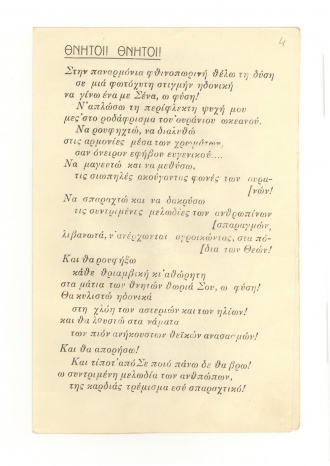 4
ΘΝΗΤΟΙ! ΘΝΗΤΟΙ!
Στην παναρμόνια φθινοπωρινή θέλω τη δύση
σε μιά φωτόχυτη στιγμήν ηδονική
να γίνω ένα με Σένα, ω φύση!
Ν'απλώσω τη περίφλεκτη ψυχή μου
μες'στο ροδάφρισμα του'ουράνιου ωκεανού.
Να ρουφηχτώ, να διαλυθώ
στις αρμονίες μέσα των χρωμάτων,
σαν όνειρον εφήβου ευγενικού....
Να μαγευτώ και να μεθύσω,
τις σιωπηλές ακούγοντας φωνές των ουρα-
[νών!
Να σπαραχτώ και να δακρύσω
τις συντριμένες μελωδίες των ανθρωπίνων
[σπαραγμών,
λιβανωτά, ν'ανέρχωνται αγροικώντας, στα πό-
[δια των Θεών!
Και θα ρουφήξω
κάθε θριαμβική κι'αθώρητη
στα μάτια των θνητών θωριά Σου, ω φύση!
Θα κυλιστώ ηδονικά
στη χλόη των αστεριών και των ηλίων!
και θα λουστώ στα νάματα
των πιόν ανήκουστων θεϊκών ανασασμών!
Και θα απορήσω!
Και τίποτ'από Σε ποιό πάνω δε θα βρω!
ω συντριμένη μελωδία των ανθρώπων,
της καρδιάς τρέμισμα εσύ σπαραχτικό!